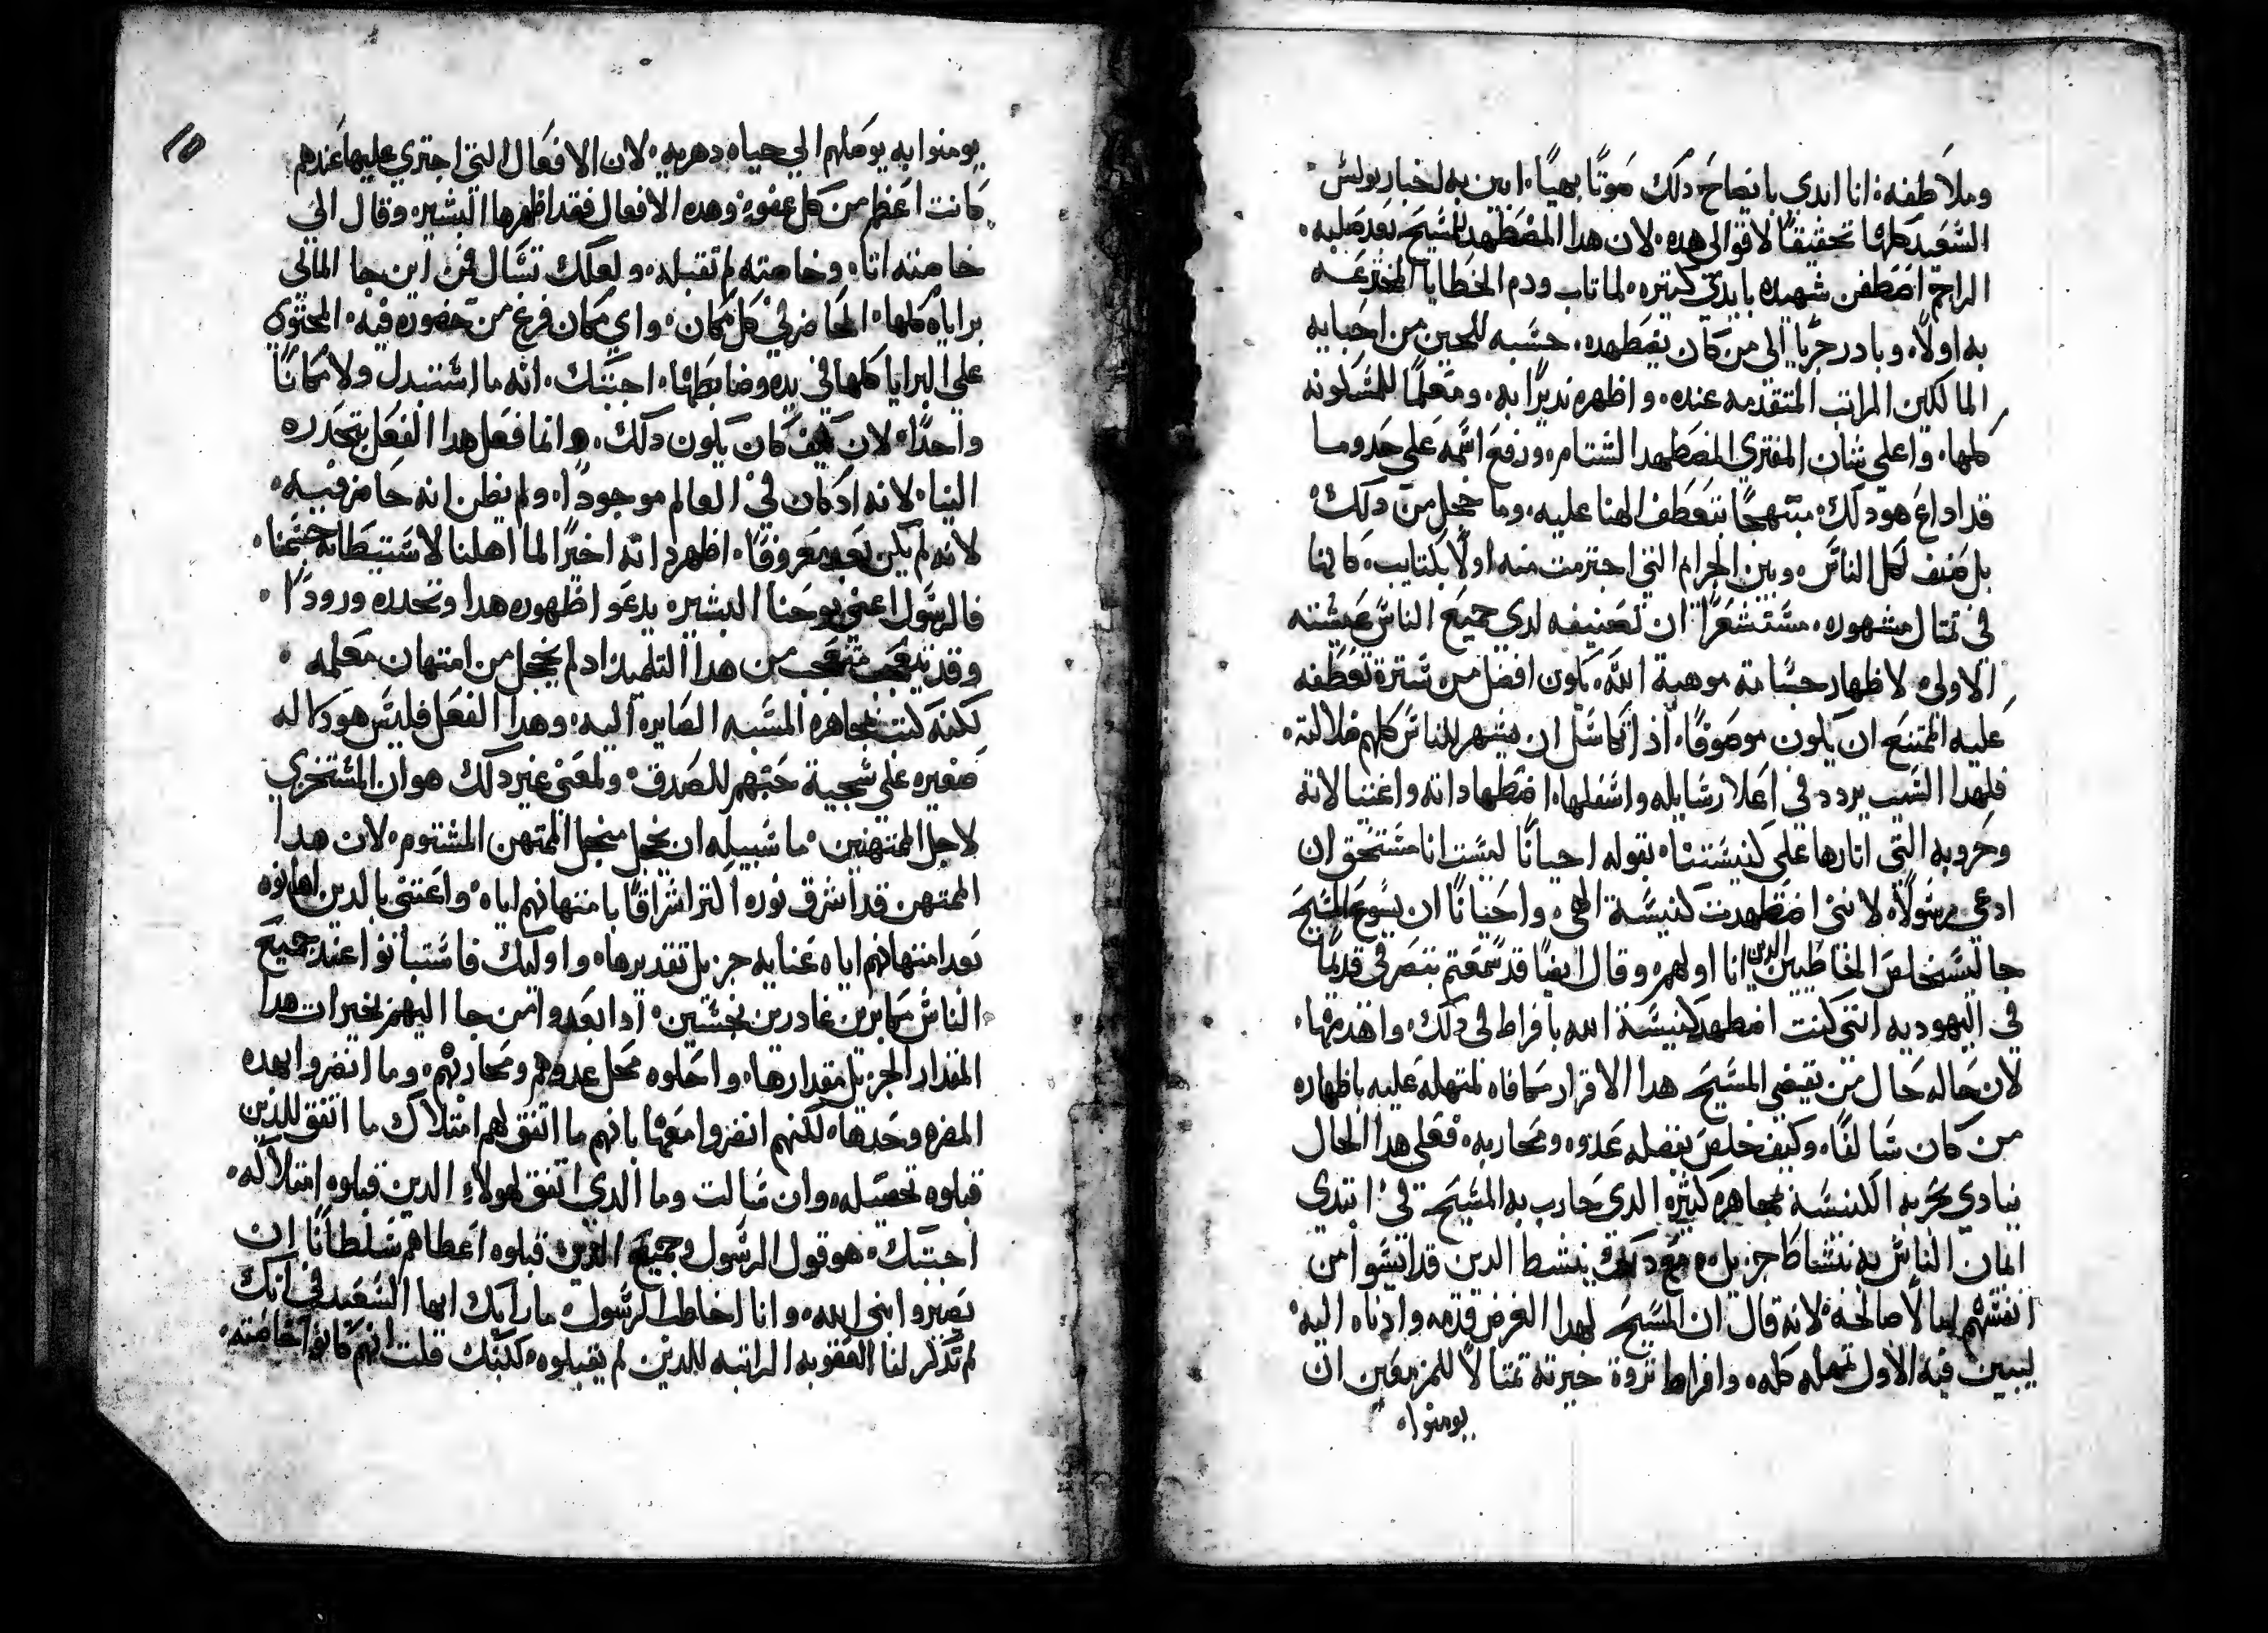 وملاطفه انا ابدي بايضاح دلك صوتًا بهيًا ابين به اخبار بولس
السعيد كلها تحقيقًا لاقوالي هده لان هدا المضطهد للمسيح بعد صلبه
الراجم اصطفن شهيده بايدي كتيره لما تاب ودم الخطايا المجترعه
به اولًا وبادر جريًا الى من كان يضطهده حسبه للحين من احبايه
المالكين المراتب المتقدمه عنده واظهره نديرًا به ومعلمًا للمسكونه
كلها واعلي شان المفتري المضطهد الشتام ورفع اسمه علي حدوما
قد اداع هو دلك مبتهجًا بتعطف الهنا عليه وما خجل من دلك
بل صنف لكل الناس وبين الجرايم التي اجترمت منه اولًا بكتايب كانها
في تمتال مشهوره مستشعرًا ان تصنيفه لدي جميع الناس عيشته
الاولى لاظهار جسامة موهبة الله يكون افضل من سترة تعطفه
عليه الممتنع ان يكون موصوفًا اد اتكاسل ان يشهر للناس كلهم ضلالته
فلهدا السبب يردد في اعلا رسايله واسفلها اضطهاداته واغتيالاته
وحروبه التي اتارها على كنيستنا بقوله احيانًا لست انا مستحق ان
ادعى رسولًا لانني اضطهدت كنيسة الهي واحيانًا ان يسوع المسيح
جا ليستخلص الخاطيين الدين انا اولهم وقال ايضًا قد سمعتم بتصرفي قديمًا
في اليهوديه انني كنت اضطهد كنيسة الله بافراط في دلك واهدمها
لان حاله حال من يقيضي المسيح هدا الاقرار مكافاه لتمهله عليه باظهاره
من كان سالفًا وكيف خلص بفضله عدوه ومحاربه فعلى هدا الحال
ينادي بحربه الكنيسة بمجاهره كثيره الدي حارب به المسيح في ابتدي
ايمان الناس به بنشاط جزيل ومع دلك ينشط الدين قد ايسوا من
انفسهم امالًا صالحة لانه قال ان المسيح لهدا الغرض قدمه وادناه اليه
ليبين فيه الاول تمهله كله وافراط تروة خيرته تمتالًا للمزمعين ان
يومنوا
١٥
يومنوا به يوصلهم الي حياه دهريه لان الافعال التي اجتري عليها عندهم
كانت اعظم من كل عفوه وهده الافعال فقد اظهرها البشير وقال الى
خاصته اتا وخاصته لم تقبله ولعلك تسال فمن اين جا المالي
براياه كلها الحاضر في كل مكان واي مكان فرغ من حضوره فيه المحتوي
على البرايا كلها في يده وضابطها اجبتك انه ما استبدل ولا مكانًا
واحدًا لان كيف كان يكون دلك وانما فعل هدا الفعل بتحدره
الينا لانه اد كان في العالم موجودًا ولم يظن انه حاضر فيه
لانه لم يكن بعد معروفًا اظهر داته اخيرًا لما اهلنا لاستيطانه جسمنا
فالرسول اعني يوحنا البشير يدعو اظهوره هدا وتحدره ورودًا
وقد يتعجب متعجب من هدا التلميد اد لم يخجل من امتهان معلمه
لكنه كتب بمجاهره المسبه الصايره اليه وهدا الفعل فليس هو دلاله
صغيره علي سجية حبهم للصدق ولمعنى غير دلك هو ان المستخزي
لاجل الممتهنين ما سبيله ان يخجل من اجل الممتهن المشتوم لان هدا
الممتهن قد اشرق نوره اكتر اشراقًا بامتهانهم اياه واعتنى بالدين اهانوه
بعد امتهانهم اياه عنايه جزيل تقديرها واوليك فاستبانوا عند جميع
الناس مكابرين غادرين نجسين ادا بعدوا من جا اليهم بخيرات هدا
المقدار الجزيل مقدارها واحلوه محل عدوهم ومحاربهم وما انضروا بهده
المضره وحدها لكنهم انضروا معها بانهم ما اتفق لهم امتلاك ما اتفق للدين
قبلوه تحصيله وان سالت وما الدي اتفق لهولاء الدين قبلوه امتلاكه
اجبتك هو قول الرسول وجميع الدين قبلوه اعطاهم سلطانًا ان
يصيروا بني الله وانا اخاطب الرسول ما رايك ايها السعيد في انك
لم تدكر لنا العقوبه الراتبه للدين لم يقبلوه لكنك قلت انهم كانوا خاصته